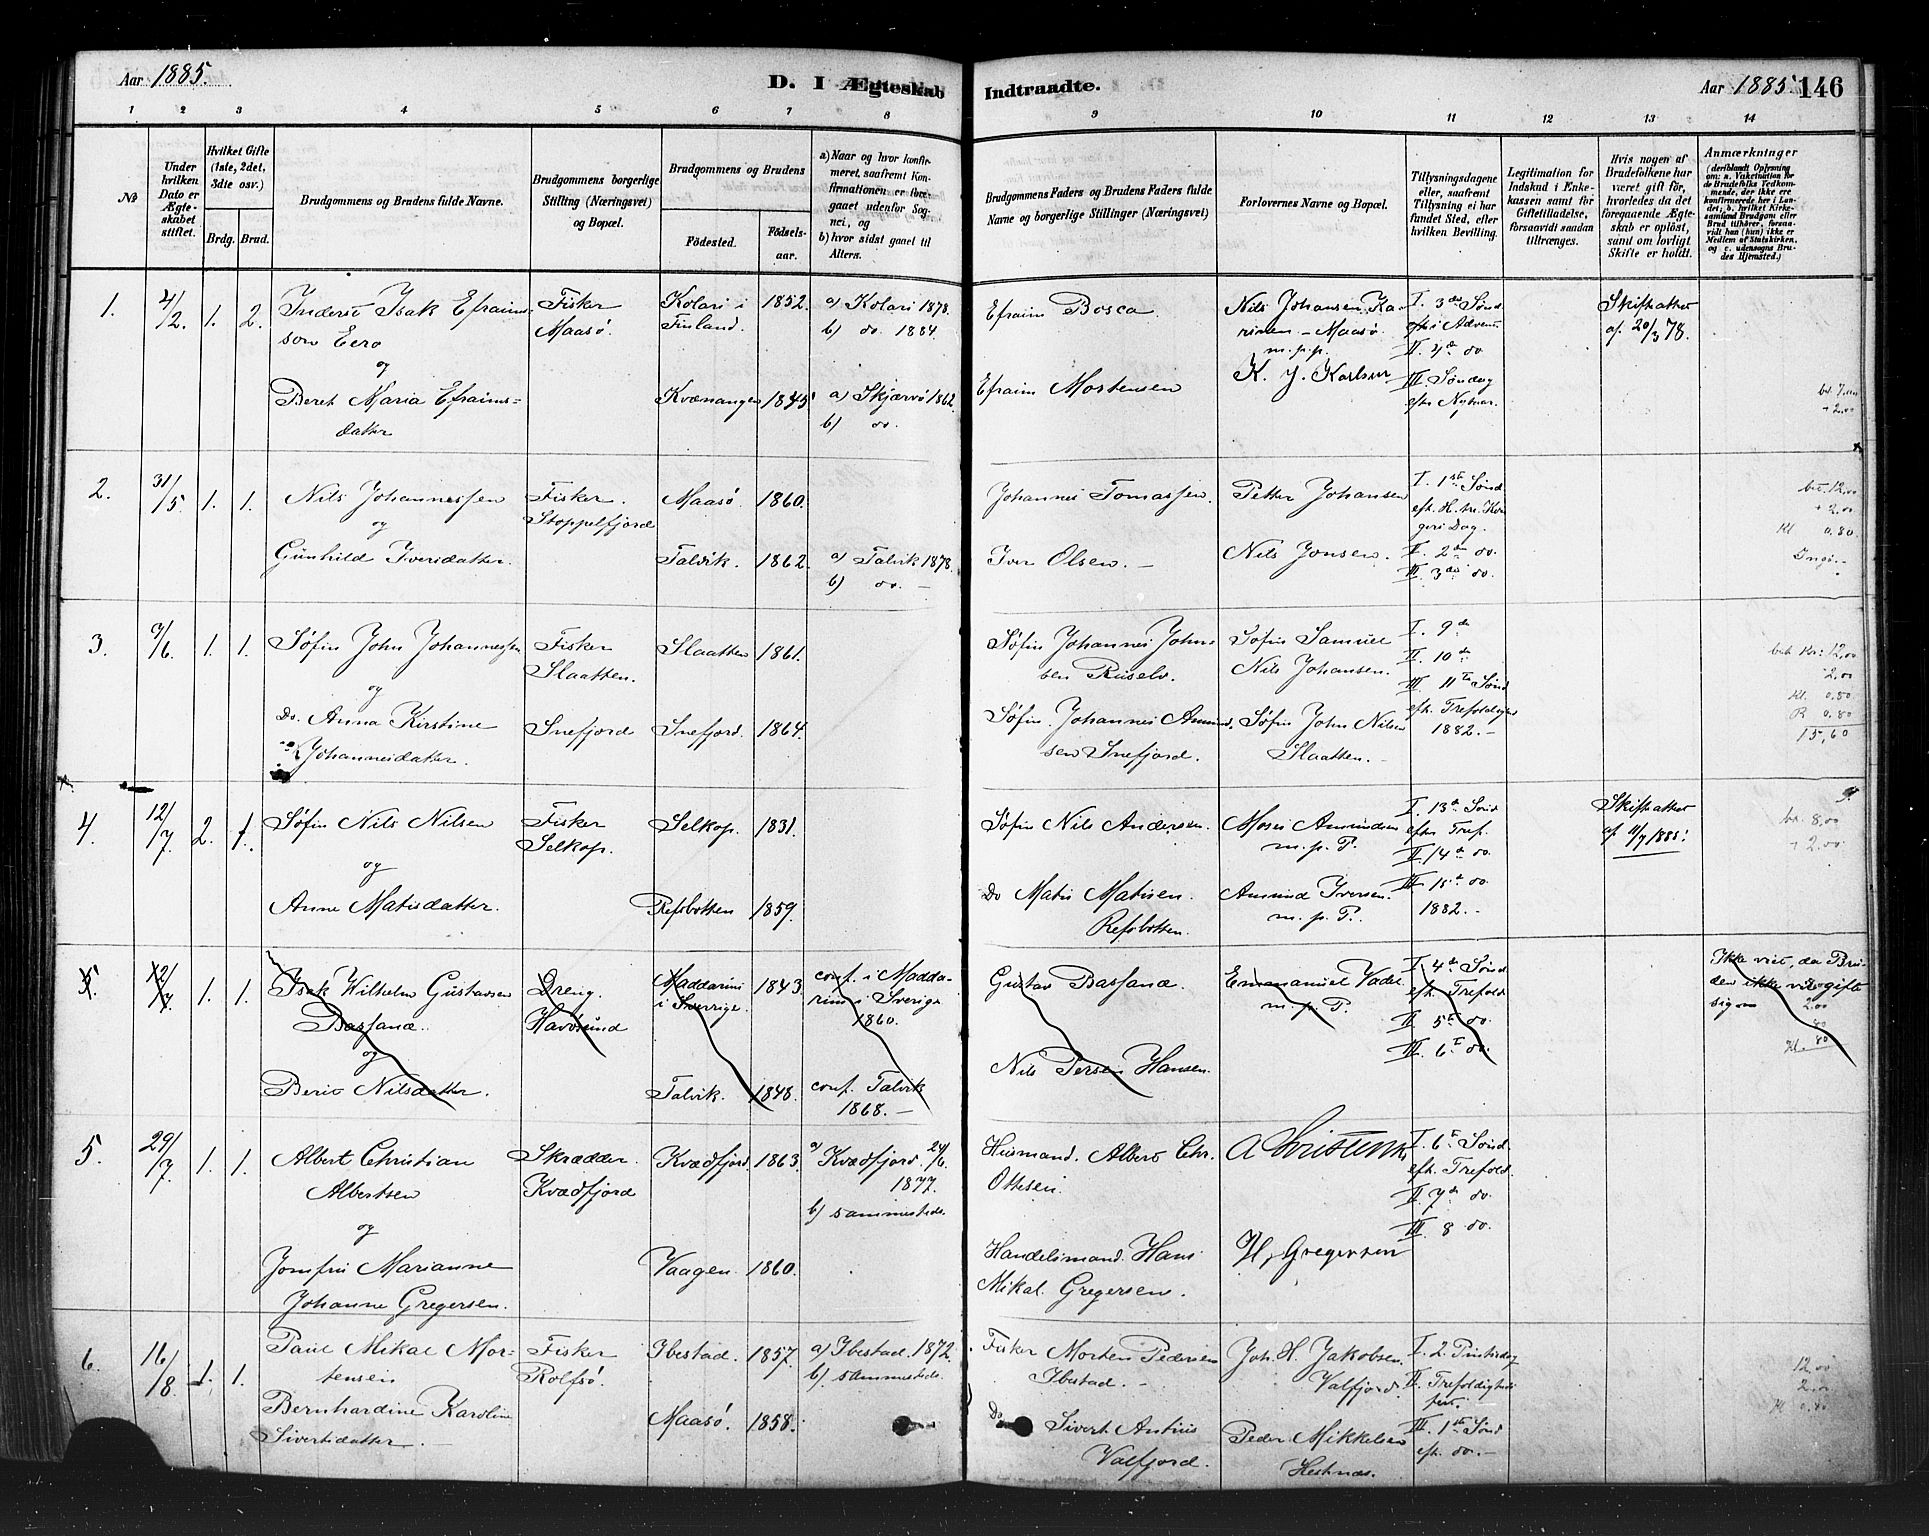 Aar 1885.
D. I Ægteskab Indtraadte.
Aar 1885 146
1 2 3 4 5 6 7 8 9 10 11 12 13 14
№
Under hvilken Dato er Ægteskabet stiftet.
Hvilket Gifte (1ste, 2det, 3die osv.)
Brdg. Brud.
Brudgommens og Brudens fulde Navne.
Brudgommens borgerlige Stilling (Næringsvei) og Bopæl.
Brudgommens og Brudens
Fødested.
Fødselsaar.
a) Naar og hvor konfirmeret, saafremt Konfirmationen er foregaaet udenfor Sognet, og
b) hvor sidst gaaet til Alters.
Brudgommens Faders og Brudens Faders fulde Navne og borgerlige Stillinger (Næringsvei)
Forlovernes Navne og Bopæl.
Tillysningsdagene eller, saafremt Tillysning ei har fundet Sted, efter hvilken Bevilling.
Legitimation for Indskud i Enkekassen samt for Giftetilladelse, forsaavidt saadan tiltrænges.
Hvis nogen af Brudefolkene har været gift før, hvorledes da det foregaaende Ægteskab er opløst, samt om lovligt Skifte er holdt.
Anmærkninger
1. 4/2. 1. 2.
Inderst Isak Efraimsson Eero
og
Beret Maria Efraimsdatter
Fisker
Maasø.
Kolari i Finland. 1852.
Kvænangen 1845
a) Kolari 1878.
b) do. 1884.
a) Skjærvø 1862.
b) do.
Efraim Bosca
Efraim Mortensen
Nils Johansen Karinen - Maasø.
m.p.p.
K. J. Karlsen
I. 3die Sønd.
eft i Advent
II. 4de do
III Søndag
eft. Nytaar.
Skifteattest
af 20/3 78.
+ 2.00
2. 31/5 1. 1.
Nils Johannessen
og
Gunhild Iversdatter.
Fisker.
Stoppelfjord
Maasø 1860.
Talvik. 1862.
a) Talvik 1878.
b) do. -
Johannes Tomassen.
Iver Olsen. -
Petter Johansen
Nils Jonsen.
I. 1ste Sønd
eft. H. tre Kongers Dag.
II. 2den do.
III. 3die do.
bet. 12,00
+ 2.00
Kl 0.80
Ingø. -
3. 9/6. 1. 1.
Søfin John Johannessen
og
Do. Anna Kirstine
Johannesdatter.
Fisker
Slaatten.
Snefjord
Slaatten 1861.
Snefjord. 1864.
Søfin Johannes Johnsen Ruselv.
Søfin. Johannes Amundsen Snefjord.
Søfin Samuel
Nils Johansen.
Søfin John Nilsen
Slaatten. -
I. 9de
II. 10de
III 11te Sønd
eft. Trefoldighed
1882. -
bet. Kr: 12,00
2.00
Kl. 0.80
R 0.80
15,60
4. 12/7. 2. 1.
Søfin Nils Nilsen
og
Anne Matisdatter.
Fisker
Selkop.
Selkop. 1831.
Refsbotten 1859.
Søfin Nils Andersen.
Do Matis Matisen.
Refsbotten.
Moses Amundsen
m. p. P.
Amund Iversen.
m. p. P.
I. 13de Sønd
efter Tref.
II. 14de do
III 15de do
1882. -
Skifteattest
af 11/7 1885.
bet. 8,00
+ 2.00
5. 12/7 1. 1.
Isak Wilhelm Gustavsen
Bassand.
og
Berit Nilsdatter.
Dreng.
Havøsund
Maddarini
i Sverrige. 1843.
Talvik. 1848.
conf. i Maddarini i Sverige
1860.
conf. Talvik
1868. -
Gustav Bassand.
Nils Persen Hansen.
Emmanuel Vadel
m. p. P.
I 4de Sønd
eft. Trefold.
II 5te do.
III. 6te do.
Ikke viet, da Bruden ikke vil gifte sig
2.00
80
Kl. 80
5. 29/7 1. 1.
Albert Christian
Albertsen
og
Jomfru Marianne
Johanne Gregersen.
Skrædder.
Kvædfjord
Kvædfjord 1863.
Vaagen. 1860.
a) Kvædfjord. 24/6.
1877.
b) sammesteds.
Husmand. Albert Chr.
Ottesen.
Handelsmand. Hans
Mikal. Gregersen.
A Christensen
H, Gregersen
I. 6te Sønd.
eft. Trefold.
II 7de do.
III. 8 do.
6. 16/8. 1. 1.
Paul Mikal Mortensen
Bernhardine Karoline
Sivertsdatter. -
Fisker
Rolfsø.
Ibestad. 1857.
Maasø. 1858.
a) Ibestad. 1872.
b) sammesteds.
Fisker Morten Pedersen
Ibestad. -
Do Sivert Antius
Valfjord.
Joh. H. Jakobsen
Valfjord.
Peder Mikkelsen
Hestnæs.
I. 2. Pintsedag
II. Trefoldigheds
fest.
III. 1ste Sønd
eft. do. -
12.00
2.00
Kl 0.80